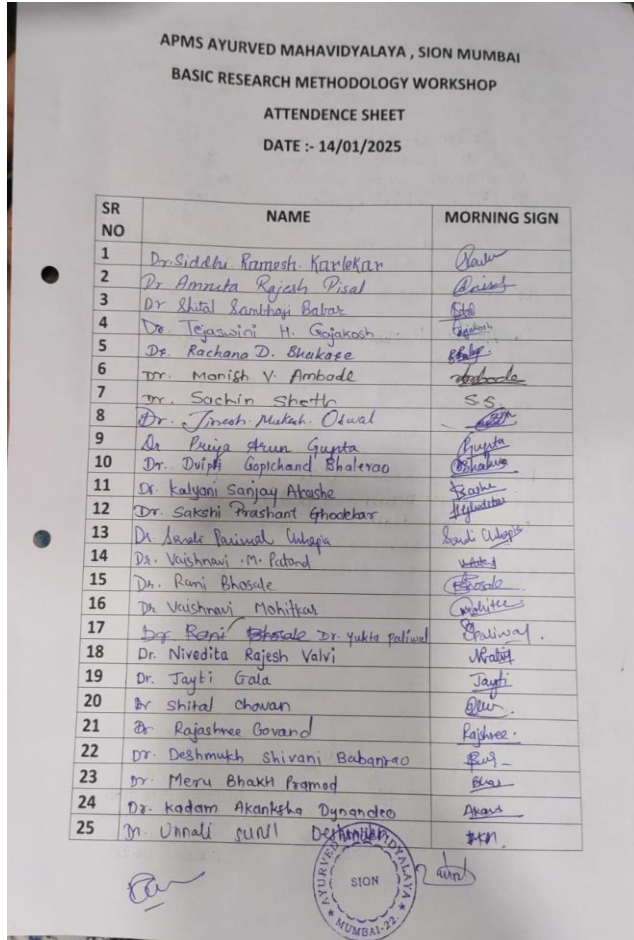 APMS AYURVED MAHAVIDYALAYA , SION MUMBAI
BASIC RESEARCH METHODOLOGY WORKSHOP
ATTENDENCE SHEET
DATE :- 14/01/2025
SR NO NAME MORNING SIGN
1 Dr. Siddhi Ramesh Karlekar
2 Dr Amruta Rajesh Pisal
3 Dr Shital Sambhaji Babar
4 Dr. Tejaswini H. Gajakosh Gajakosh
5 Dr. Rachana D. Bhakare
6 Dr. Monish V. Ambade Ambade
7 Dr. Sachin Sheth S.S.
8 Dr. Jinesh Mukesh Oswal
9 Dr Priya Arun Gupta Gupta
10 Dr. Gopichand Bhalerao
11 Dr. Kalyani Sanjay Akashe
12 Dr. Sakshi Prashant Ghodekar
13 Dr Parimal
14 Dr. Vaishnavi .M. Patond
15 Dr. Rani Bhosale Bhosale
16 Dr Vaishnavi Mohitkar
17 Dr Rani Bhosale Dr. Yukta Paliwal Paliwal
18 Dr. Nivedita Rajesh Valvi
19 Dr. Jayti Gala Jayti
20 Dr Shital Chavan
21 Dr. Rajashree Govand Rajshree.
22 Dr. Deshmukh Shivani Babanrao
23 Dr. Meru Bhakti Pramod
24 Dr. Kadam Akanksha Dynandeo
25 Dr. Unnati Sunil Deshmukh
AYURVED MAHAVIDYALAYA
SION
★ MUMBAI-22. ★